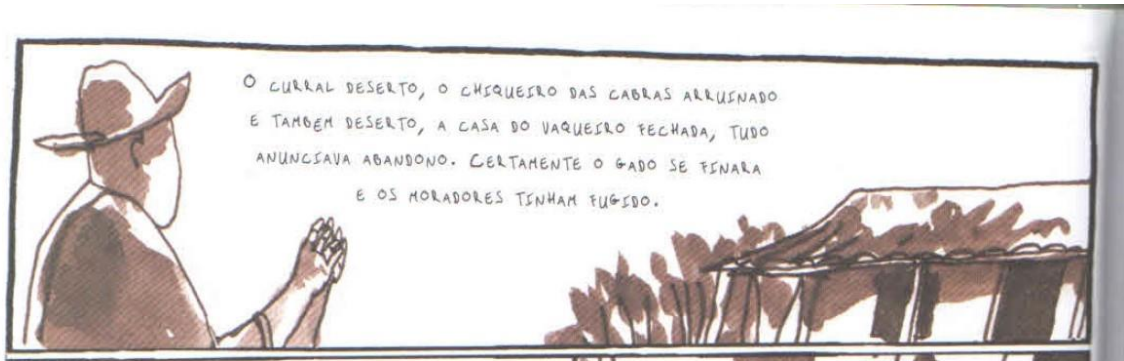 O CURRAL DESERTO, O CHIQUEIRO DAS CABRAS ARRUINADO
E TAMBEM DESERTO, A CASA DO VAQUEIRO FECHADA, TUDO
ANUNCIAVA ABANDONO. CERTAMENTE O GADO SE FINARA
E OS MORADORES TINHAM FUGIDO.